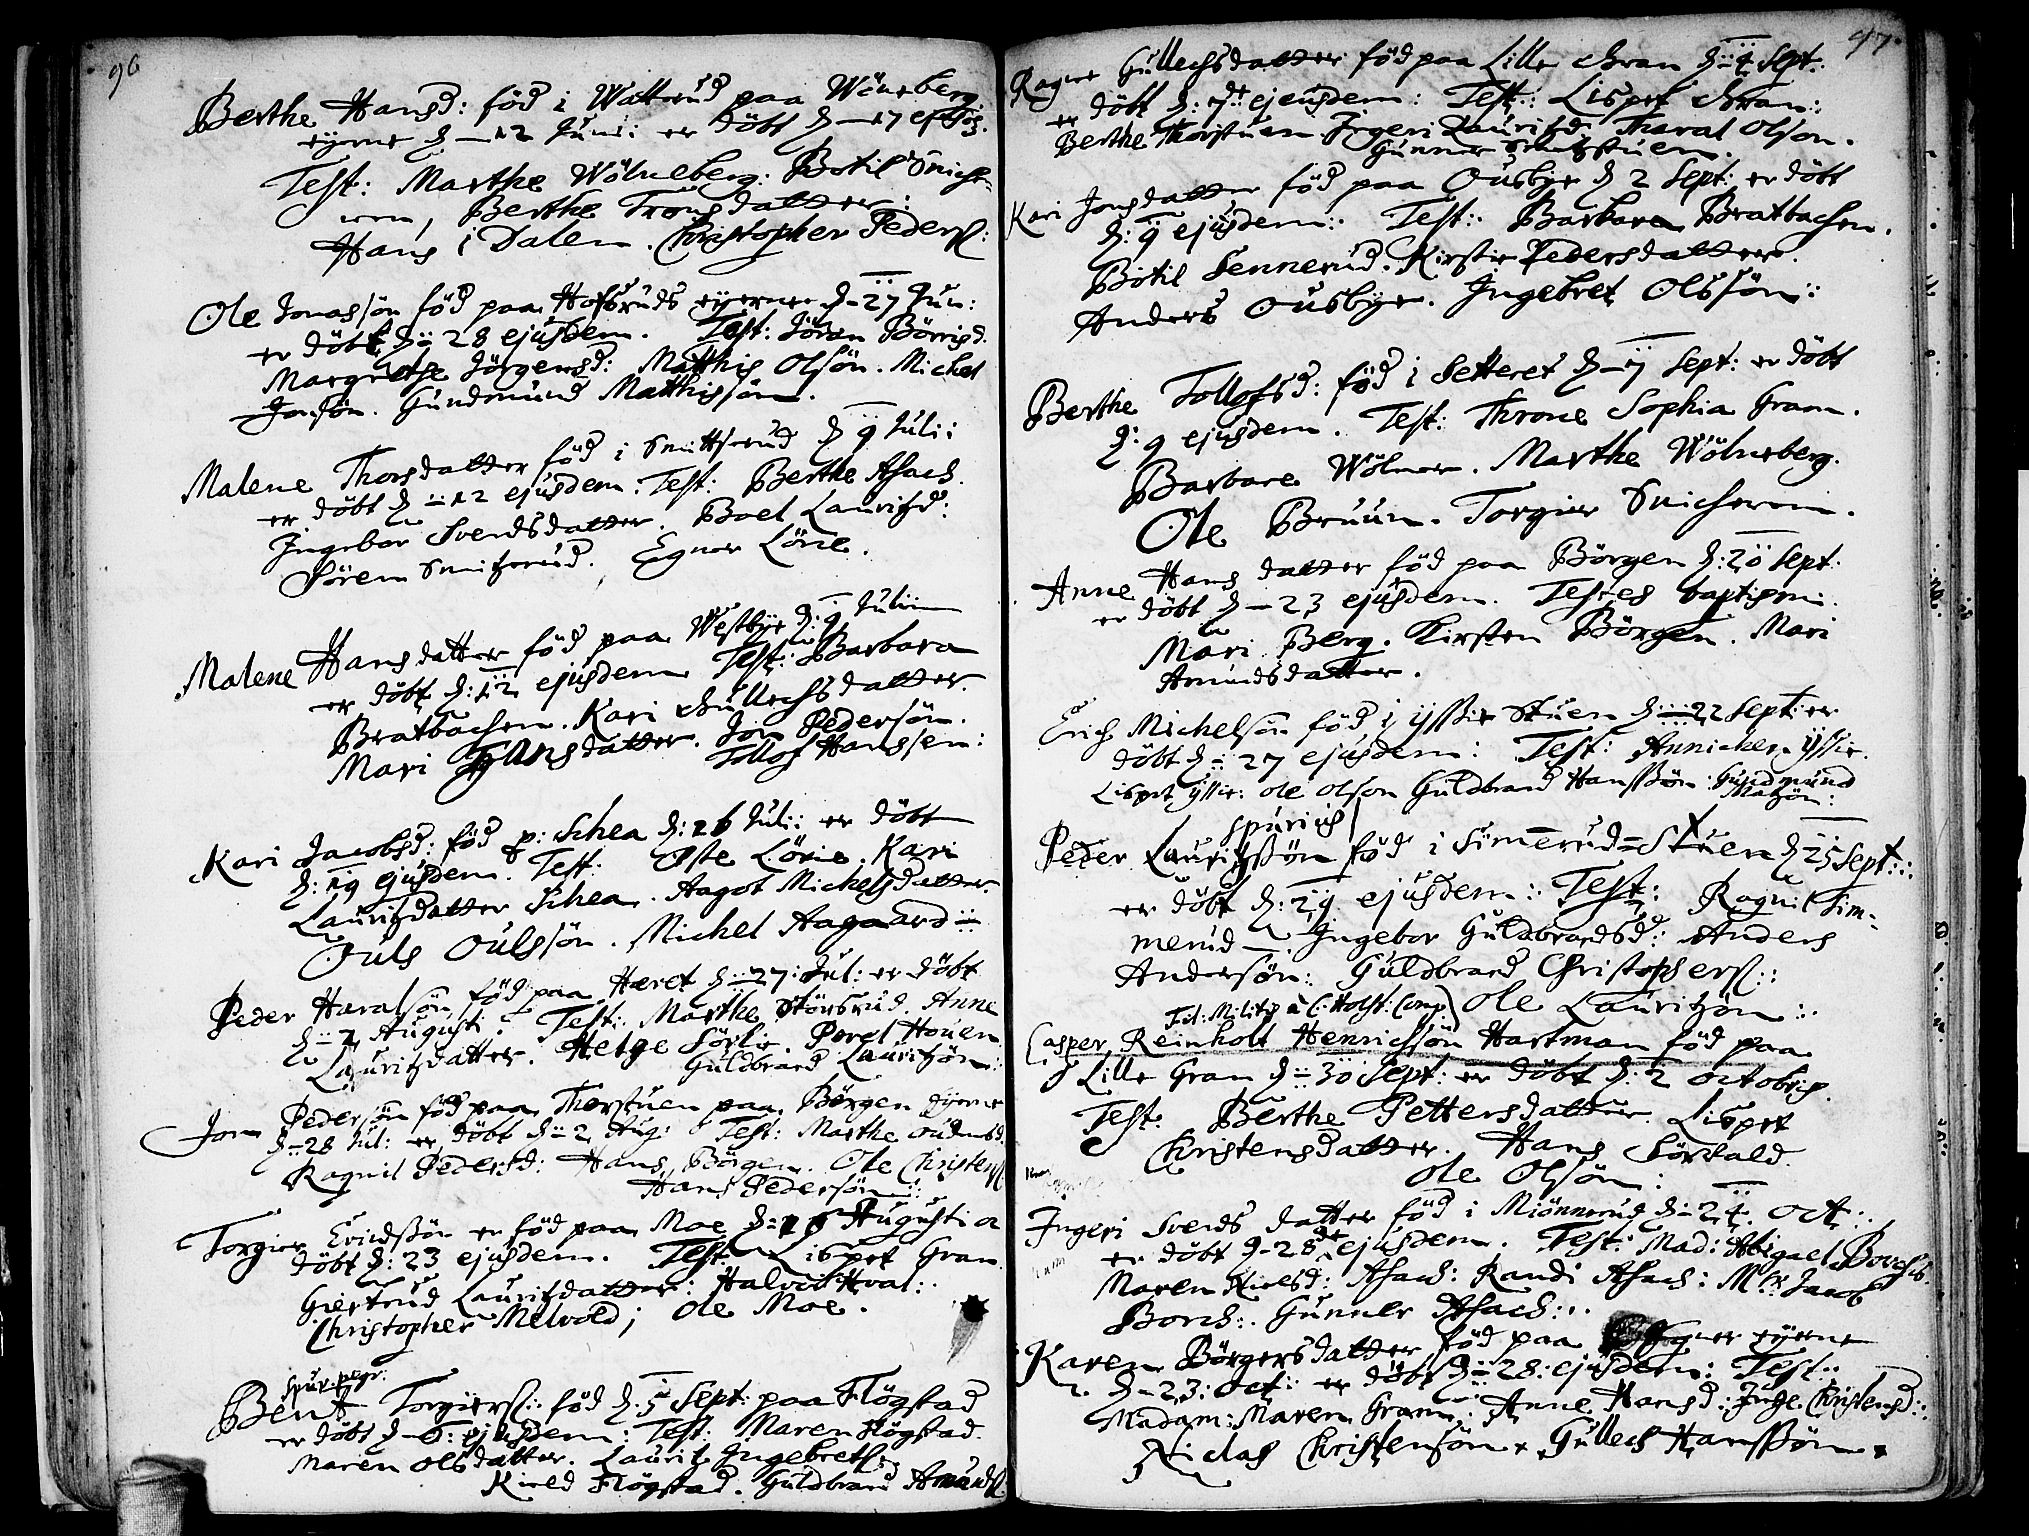 96
Berthe Hansd: föd i Watterud paa Wölneberg
eyerne d – 12 Junii er döbt d – 17 ejusd.
Test: Marthe Wölneberg: Botil Snicher-
um, Berthe Tronsdatter:
Hans i Dalen. Christopher Peders:
Ole Jonassön föd paa Hofsruds eyerne d – 27 Jun:
er döbt d: 28 ejusdem. Test: Jöran Börrisd.
Margrethe Jörgensd: Matthis Olsön. Michel
Jonsön. Gundmund Matthissön.
Malene Thorsdatter föd i Smittsrud d 9 Julii
er döbt d = 12 ejusdem. Test: Berthe Asach.
Ingebor Svendsdatter. Boel Lauritzd:
Sören Smitzrud. Egner Lörie.
Malene Hansdatter föd paa Westbye d: 9 Julii
er döbt d: 12 ejusdem Test: Barbara
Bratbachen. Kari Gullechsdatter.
Mari Hansdatter. Jon Pedersön.
Tollof Hanssen:
Kari Jacobsd: föd p: Schea d: 16 Julii er döbt
d: 19 ejusdem. Test: Osle Lörie. Kari
Lauritzdatter Schea. Aagot Michelsdatter.
Ouls Oulssön. Michel Aagaard
Peder Haralsön föd paa Haret d: 27: Jul: er döbt
d: 2 Augusti. Test: Marthe Störsrud. Anne
Lauritzdatter. Helge Sörlie. Porel Houen
Guldbrand Lauritzön:
Jon Pedersön föd paa Thorstuen paa Börgen eyerne
d – 28 Jul: er döbt d = 2 Aug: Test: Marthe oudensd.
Ragnil Pedersd: Hans Börgen. Ole Christens
Hans Pedersön:
Torgier Evindssön er föd paa Moe d: 16 Augusti er
döbt d: 23 ejusdem. Test: Lispet Gran.
Giertrud Lauritzdatter: Halvor Hval:
Christopher Melvold; Ole Moe.
Spur: pegr.
Bent Torgiers: föd d: 5 Sept: paa Flögstad
er döbt d – 6: ejusdem: Test: Maren Flögstad.
Maren Olsdatter. Laurit Ingebrets
Kield Flögstad. Guldbrand Amunds
97
Ragne Gullechsdatter föd paa Lille Gran d: 4 Sept:
er döbt d: 7de ejusdem: Test: Lispet Gran:
Berthe Thorstuen Jngeri Lauritzd: Tharal Olson.
Gunner
Kari Jonsdatter föd paa Ousbye d 2 Sept: er döbt
d: 9 ejusdem: Test: Barbara Bratbachen.
Botil Sennerud. Kirstie Pedersdatter.
Anders Ousbye. Ingebret Olssön:
Berthe Tollofsd: föd i Setteret d – 7 Sept: er döbt
d: 9 ejusdem. Test: Throne Sophia Gram.
Barbare Wölner. Marthe Wölneberg.
Ole Bruun. Torgier Snicherum.
Anne Hansdatter föd paa Börgen d: 20 Sept:
er döbt d – 23 ejusdem. Testes baptismi.
Mari Berg. Kirsten Börgen. Mari
Amundsdatter.
Erich Michelsön föd i ijssie Stuen d: 22 Sept: er
döbt d: 27 ejusdem: Test: Annichen ijssie.
Lispet ijssie: Ole Olson Guldbrand Hanssön: Gundmund
Matzön:
spurius
Peder Lauritzsön föd i Simerud=Stuen d 25 Sept::
er döbt d: 29 ejusdem: Test: Ragnil Sim-
merud – Ingebor Guldbrandsd: Anders
Andersön: Guldbrand Christophers::
Ole Lauritzön:
Fil: Milit: à C: Holst: Comp:
Casper Reinholt Henrichsön Hartman föd paa
Lille Gran d: 30 Sept: er döbt d: 2 octobris.
Test: Berthe Pettersdatter Lispet
Christensdatter. Hans Sörkald.
Ole Olsön:
Ingeri Svendsdatter föd i Miönnerud d – 24. oct:
er döbt d – 28de ejusdem. Test: Mad: Abigael Borchs.
Maren Nielsd: Asach: Randi Asach: Mr: Jacob
Borch: Gunner Asach:
Karen Börgersdatter föd paa eyerne
d – 23: oct: er döbt d: 28: ejusdem: Test:
Madam: Maren Gram: Anne Hansd: Inge Christensd:
Niclas Christensön & Gullech Hanssön